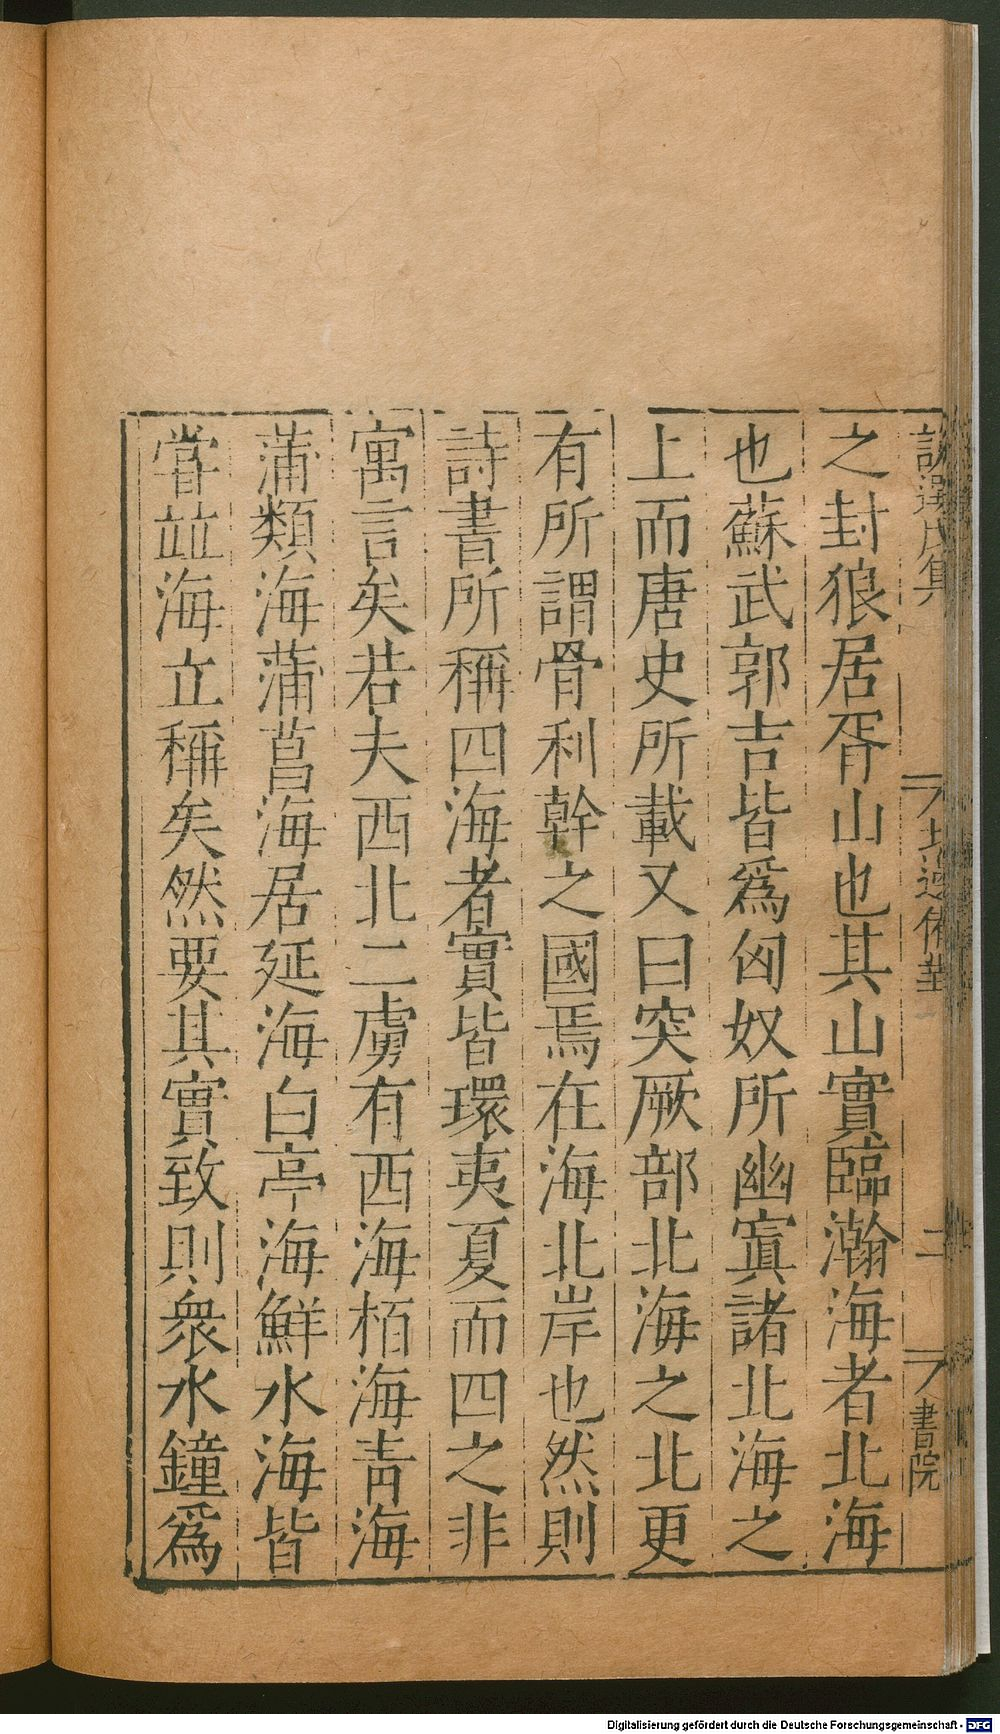 之封狼居胥山也其山實臨瀚海者北海
也蘇武郭吉皆爲匈奴所幽寘諸北海之
上而唐史所載又曰突厥部北海之北更
有所謂骨利幹之國焉在海北岸也然則
詩書所稱四海者實皆環夷夏而四之非
寓言矣若夫西北二虜有西海栢海青海
蒲類海蒲菖海居延海白亭海鮮水海皆
甞並海立稱矣然要其實致則衆水鐘爲
二
書院
Digitalisierung gefördert durch die Deutsche Forschungsgemeinschaft - DFG